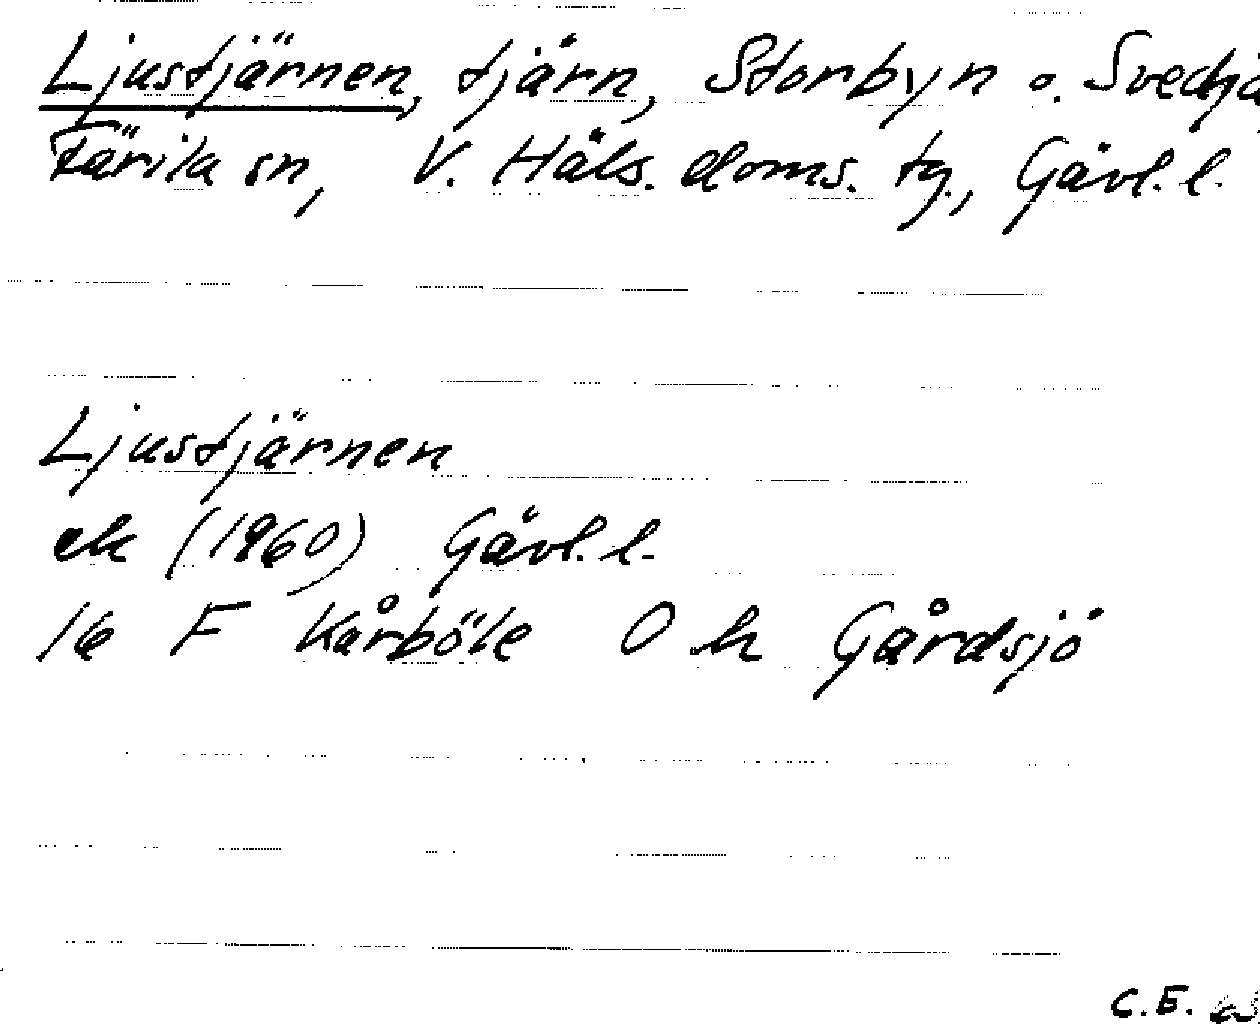 Ljustjärnen, tjärn, Storbyn o. Svedjä
Färila sn, V. Häls. doms. tg., Gävl. l.
Ljustjärnen
ek (1960) Gävl. l.
16 F Kårböle O h Gårdsjö
C.E.